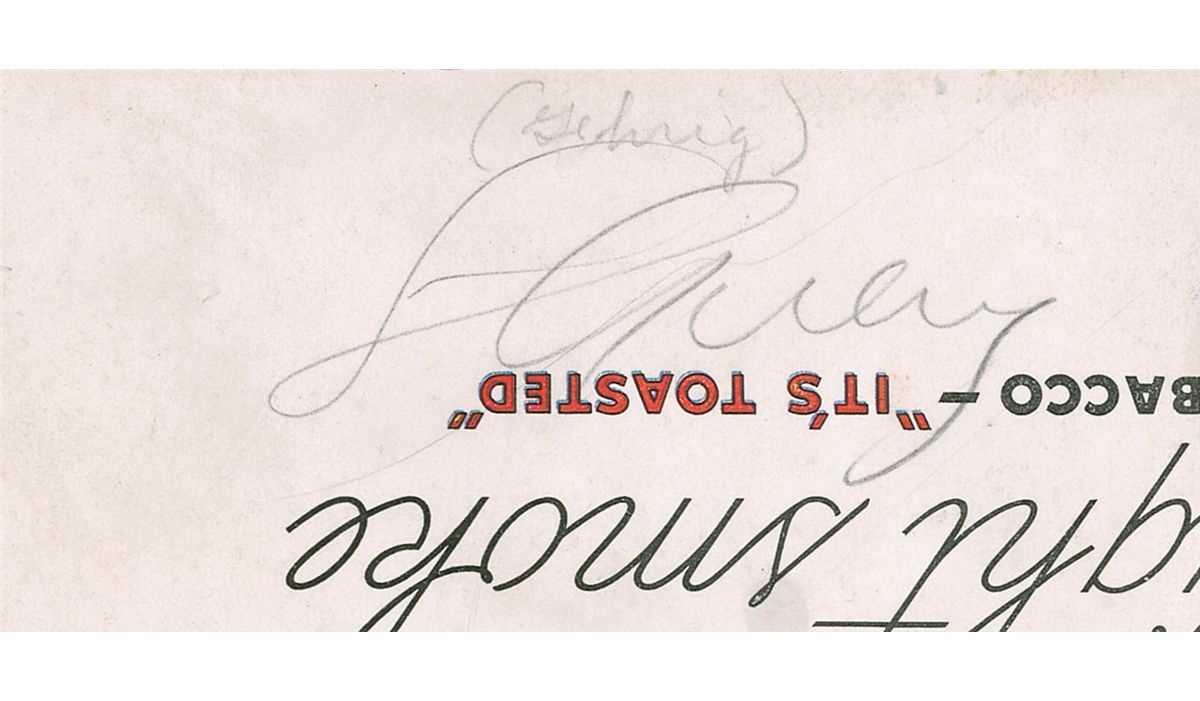 (Gehrig)
BACCO – "IT'S TOASTED"
ght smoke